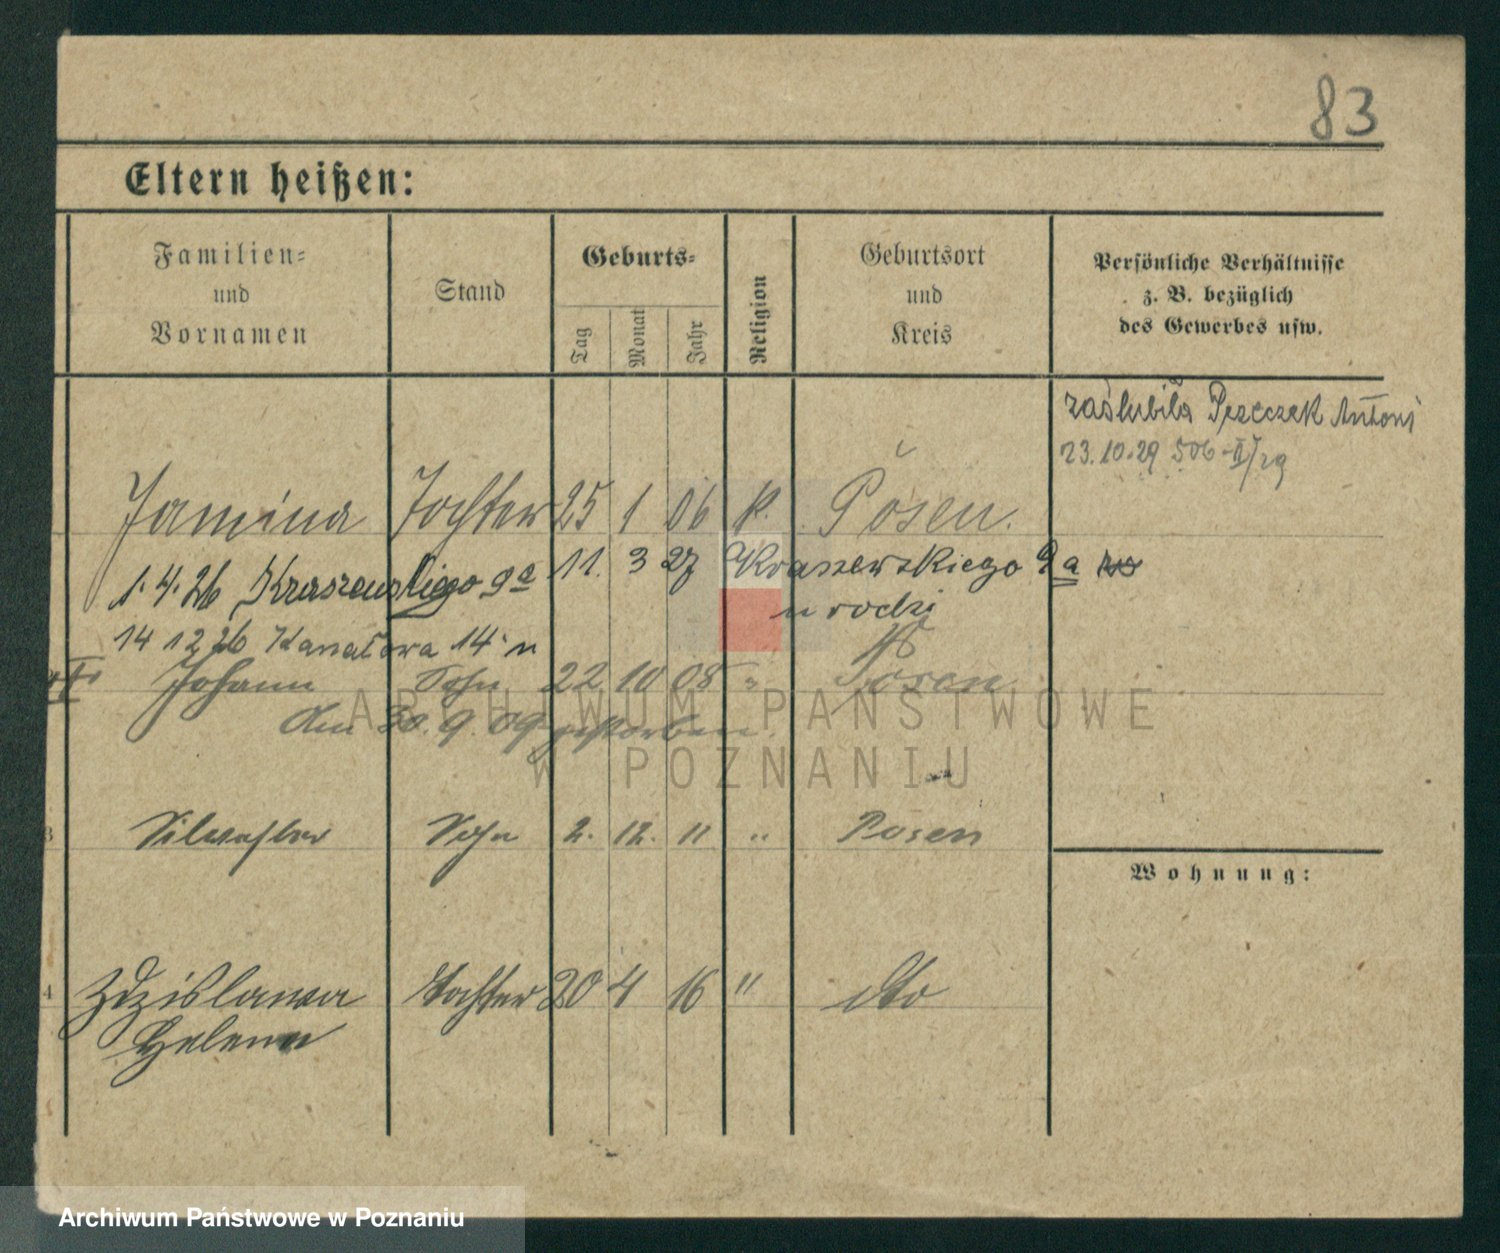 83
Eltern heißen:
Familien-
und
Vornamen
Stand
Geburts-
Tag
Monat
Jahr
Religion
Geburtsort
und
Kreis
Persönliche Verhältnisse
z. B. bezüglich
des Gewerbes usw.
zaślubiła Antoni
23.10.29 506-II/29
Janina Tochter 25 1 06 k. Posen.
1.4.26 Kraszewskiego 9a 11. 3 27 Kraszewskiego 9a
u rodzi
14 12 26 Kanałowa 14 u
Johann Sohn 22 10 08 " Posen
Am 30.9.09 gestorben.
3 Silvester Sohn 2. 12. 11 " Posen
Wohnung:
4 Zdzislawa Tochter 20 4 16 " dto
Helena
ARCHIWUM PAŃSTWOWE
W POZNANIU
Archiwum Państwowe w Poznaniu